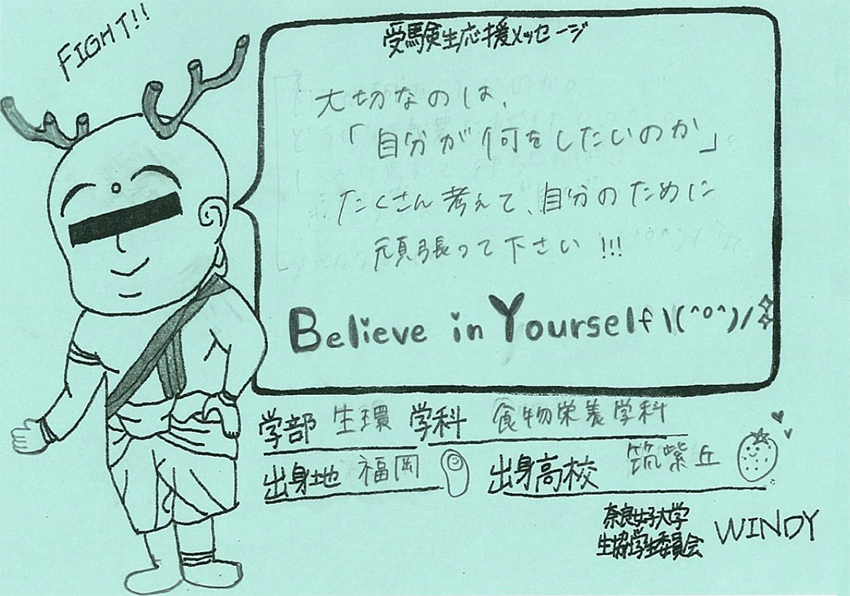 FIGHT!!
受験生応援メッセージ
大切なのは、
「自分が何をしたいのか」
たくさん考えて、自分のために
頑張って下さい!!!
Believe in Yourself \(^o^)/
学部 生環 学科 食物栄養学科
出身地 福岡 出身高校 筑紫丘
奈良女子大学
生協学生委員会 WINDY